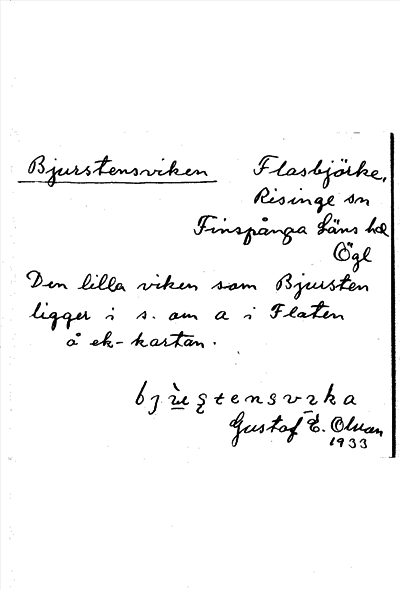 Bjurstensviken Flasbjörke,
Risinge sn
Finspånga Läns hd
Ögl
Den lilla viken som Bjursten
ligger i s. om a i Flaten
å ek-kartan.
Gustaf E. Olsson
1933